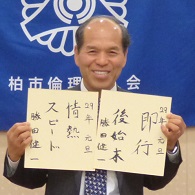 柏市倫理
会
即行
後始末
29年 元旦
勝田健一
29年 元旦
情熱
スピード
勝田健一